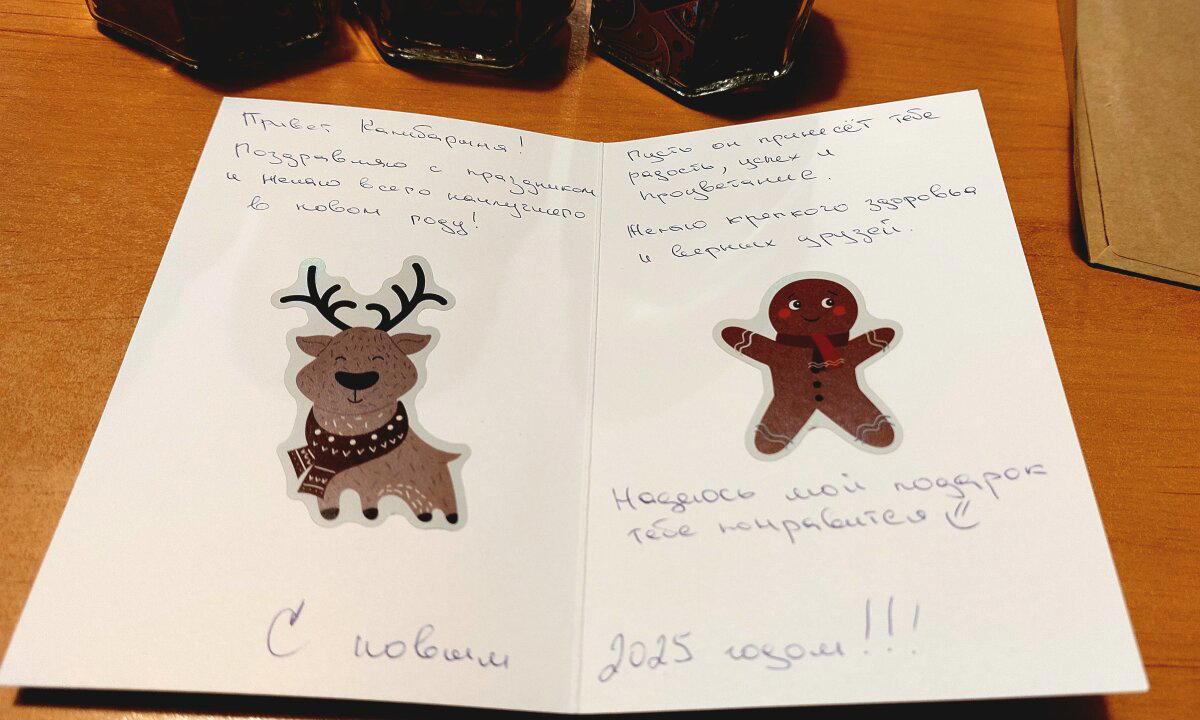 Привет Камбарыня!
Поздравляю с праздником
и желаю всего наилучшего
в новом году!
Пусть он принесёт тебе
радость, успех и
процветание.
Желаю крепкого здоровья
и верных друзей.
Надеюсь мой подарок
тебе понравится
С новым 2025 годом!!!